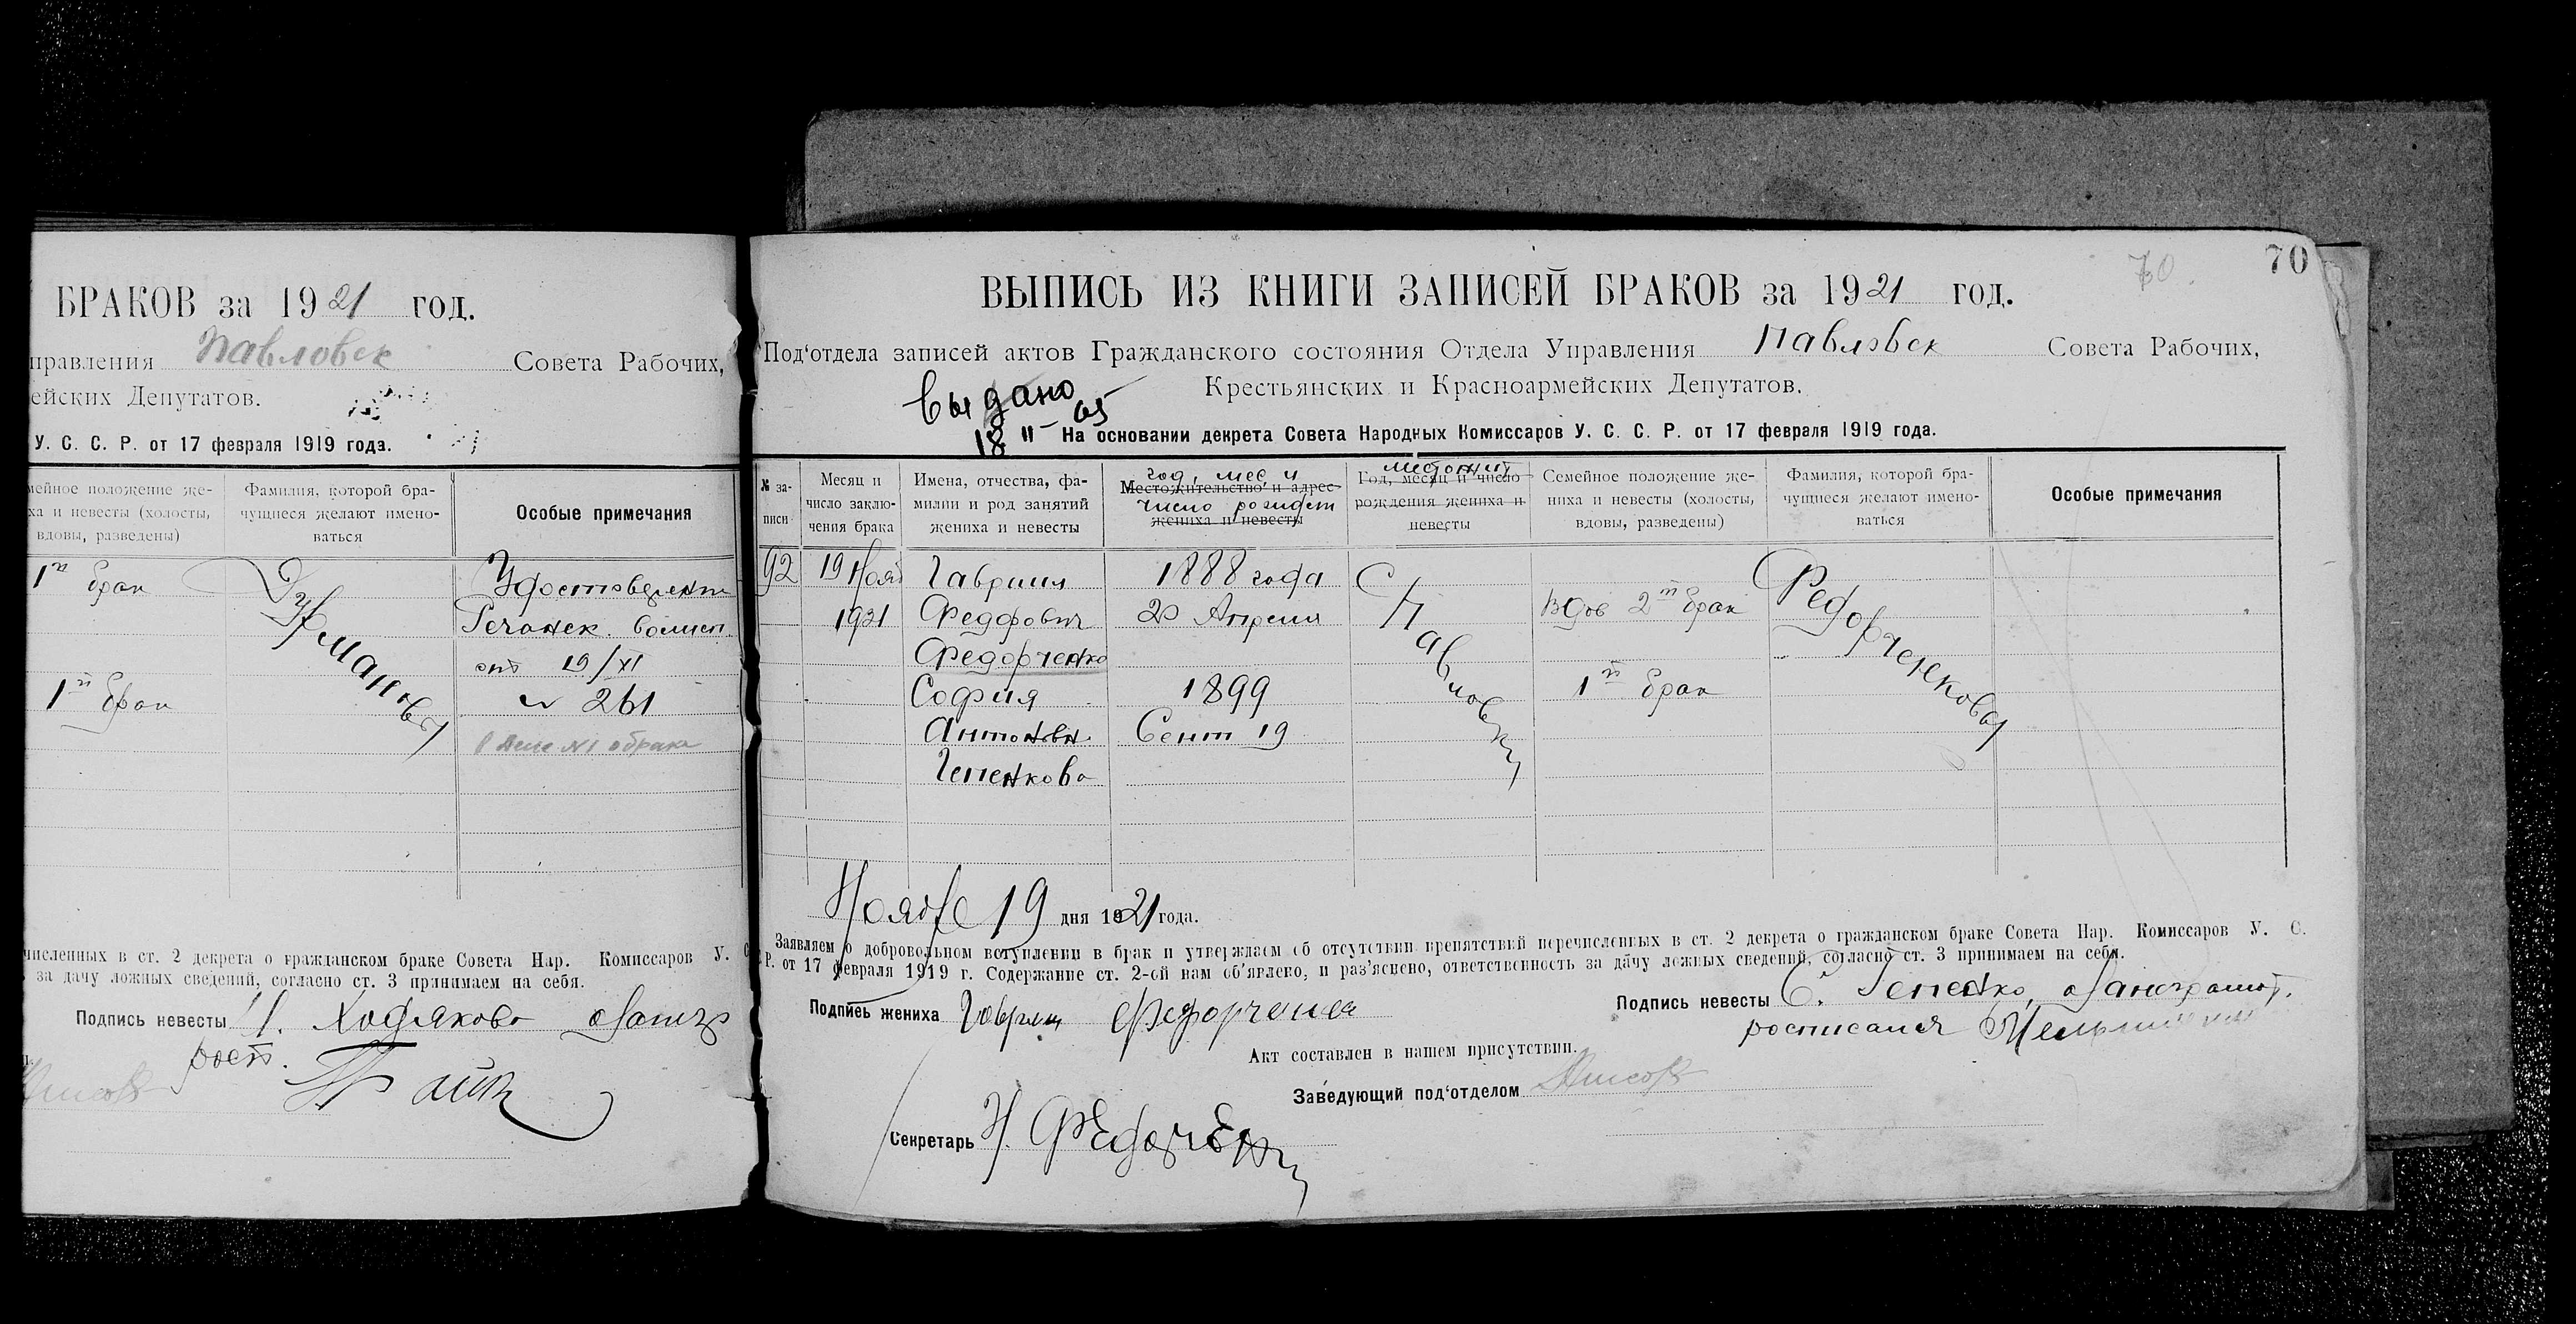 БРАКОВ за 1921 год.
правления Павловск Совета Рабочих,
ейских Депутатов.
У. С. С. Р. от 17 февраля 1919 года.
мейное положение же-
ха и невесты (холосты,
вдовы, разведены)
Фамилия, которой бра-
чущиеся желают имено-
ваться
Особые примечания
1й брак
1й брак
Удостоверения
от 19/XI
№ 261
в деле №1 о браке
численных в ст. 2 декрета о гражданском браке Совета Нар. Комиссаров У. С
за дачу ложных сведений, согласно ст. 3 принимаем на себя.
Подпись невесты Ходякова
70
70.
ВЫПИСЬ ИЗ КНИГИ ЗАПИСЕЙ БРАКОВ за 1921 год.
Под'отдела записей актов Гражданского состояния Отдела Управления Павловск Совета Рабочих,
Крестьянских и Красноармейских Депутатов.
Выдано
18
На основании декрета Совета Народных Комиссаров У. С. С. Р. от 17 февраля 1919 года.
№ за-
писи
Месяц и
число заклю-
чения брака
Имена, отчества, фа-
милии и род занятий
жениха и невесты
год, мес, и
Местожительство и адрес
число рожден
жениха и невесты
местожит
Год, месяц и число
рождения жениха и
невесты
Семейное положение же-
ниха и невесты (холосты,
вдовы, разведены)
Фамилия, которой бра-
чущиеся желают имено-
ваться
Особые примечания
92 19 Нояб Гавриил 1888 года
1921 Федорович 20 Апреля вдов 2й брак
Федорченко
София 1899 1й брак
Антоновн. Сент 19
Гепенкова
С Павловка
Федорченковы
Ноября 19 дня 1921 года.
Заявляем о добровольном вступлении в брак и утверждаем об отсутствии препятствий перечисленных в ст. 2 декрета о гражданском браке Совета Нар. Комиссаров У. С.
Р. от 17 февраля 1919 г. Содержание ст. 2-ой нам об'явлено, и раз'яснено, ответственность за дачу ложных сведений, согласно ст. 3 принимаем на себя.
Подпись жениха Гавриил Федорченко
Подпись невесты С. Гепенко,
росписался
Акт составлен в нашем присутствии.
Заведующий под'отделом
Секретарь Н. Федорченко